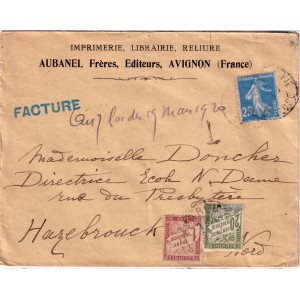 IMPRIMERIE, LIBRAIRIE, RELIURE
AUBANEL Frères, Editeurs, AVIGNON (France)
FACTURE
25
19 Mars 1920
Mademoiselle Doncker
Directrice Ecole N. Dame
rue du Presbytère
Hazebrouck
Nord
20